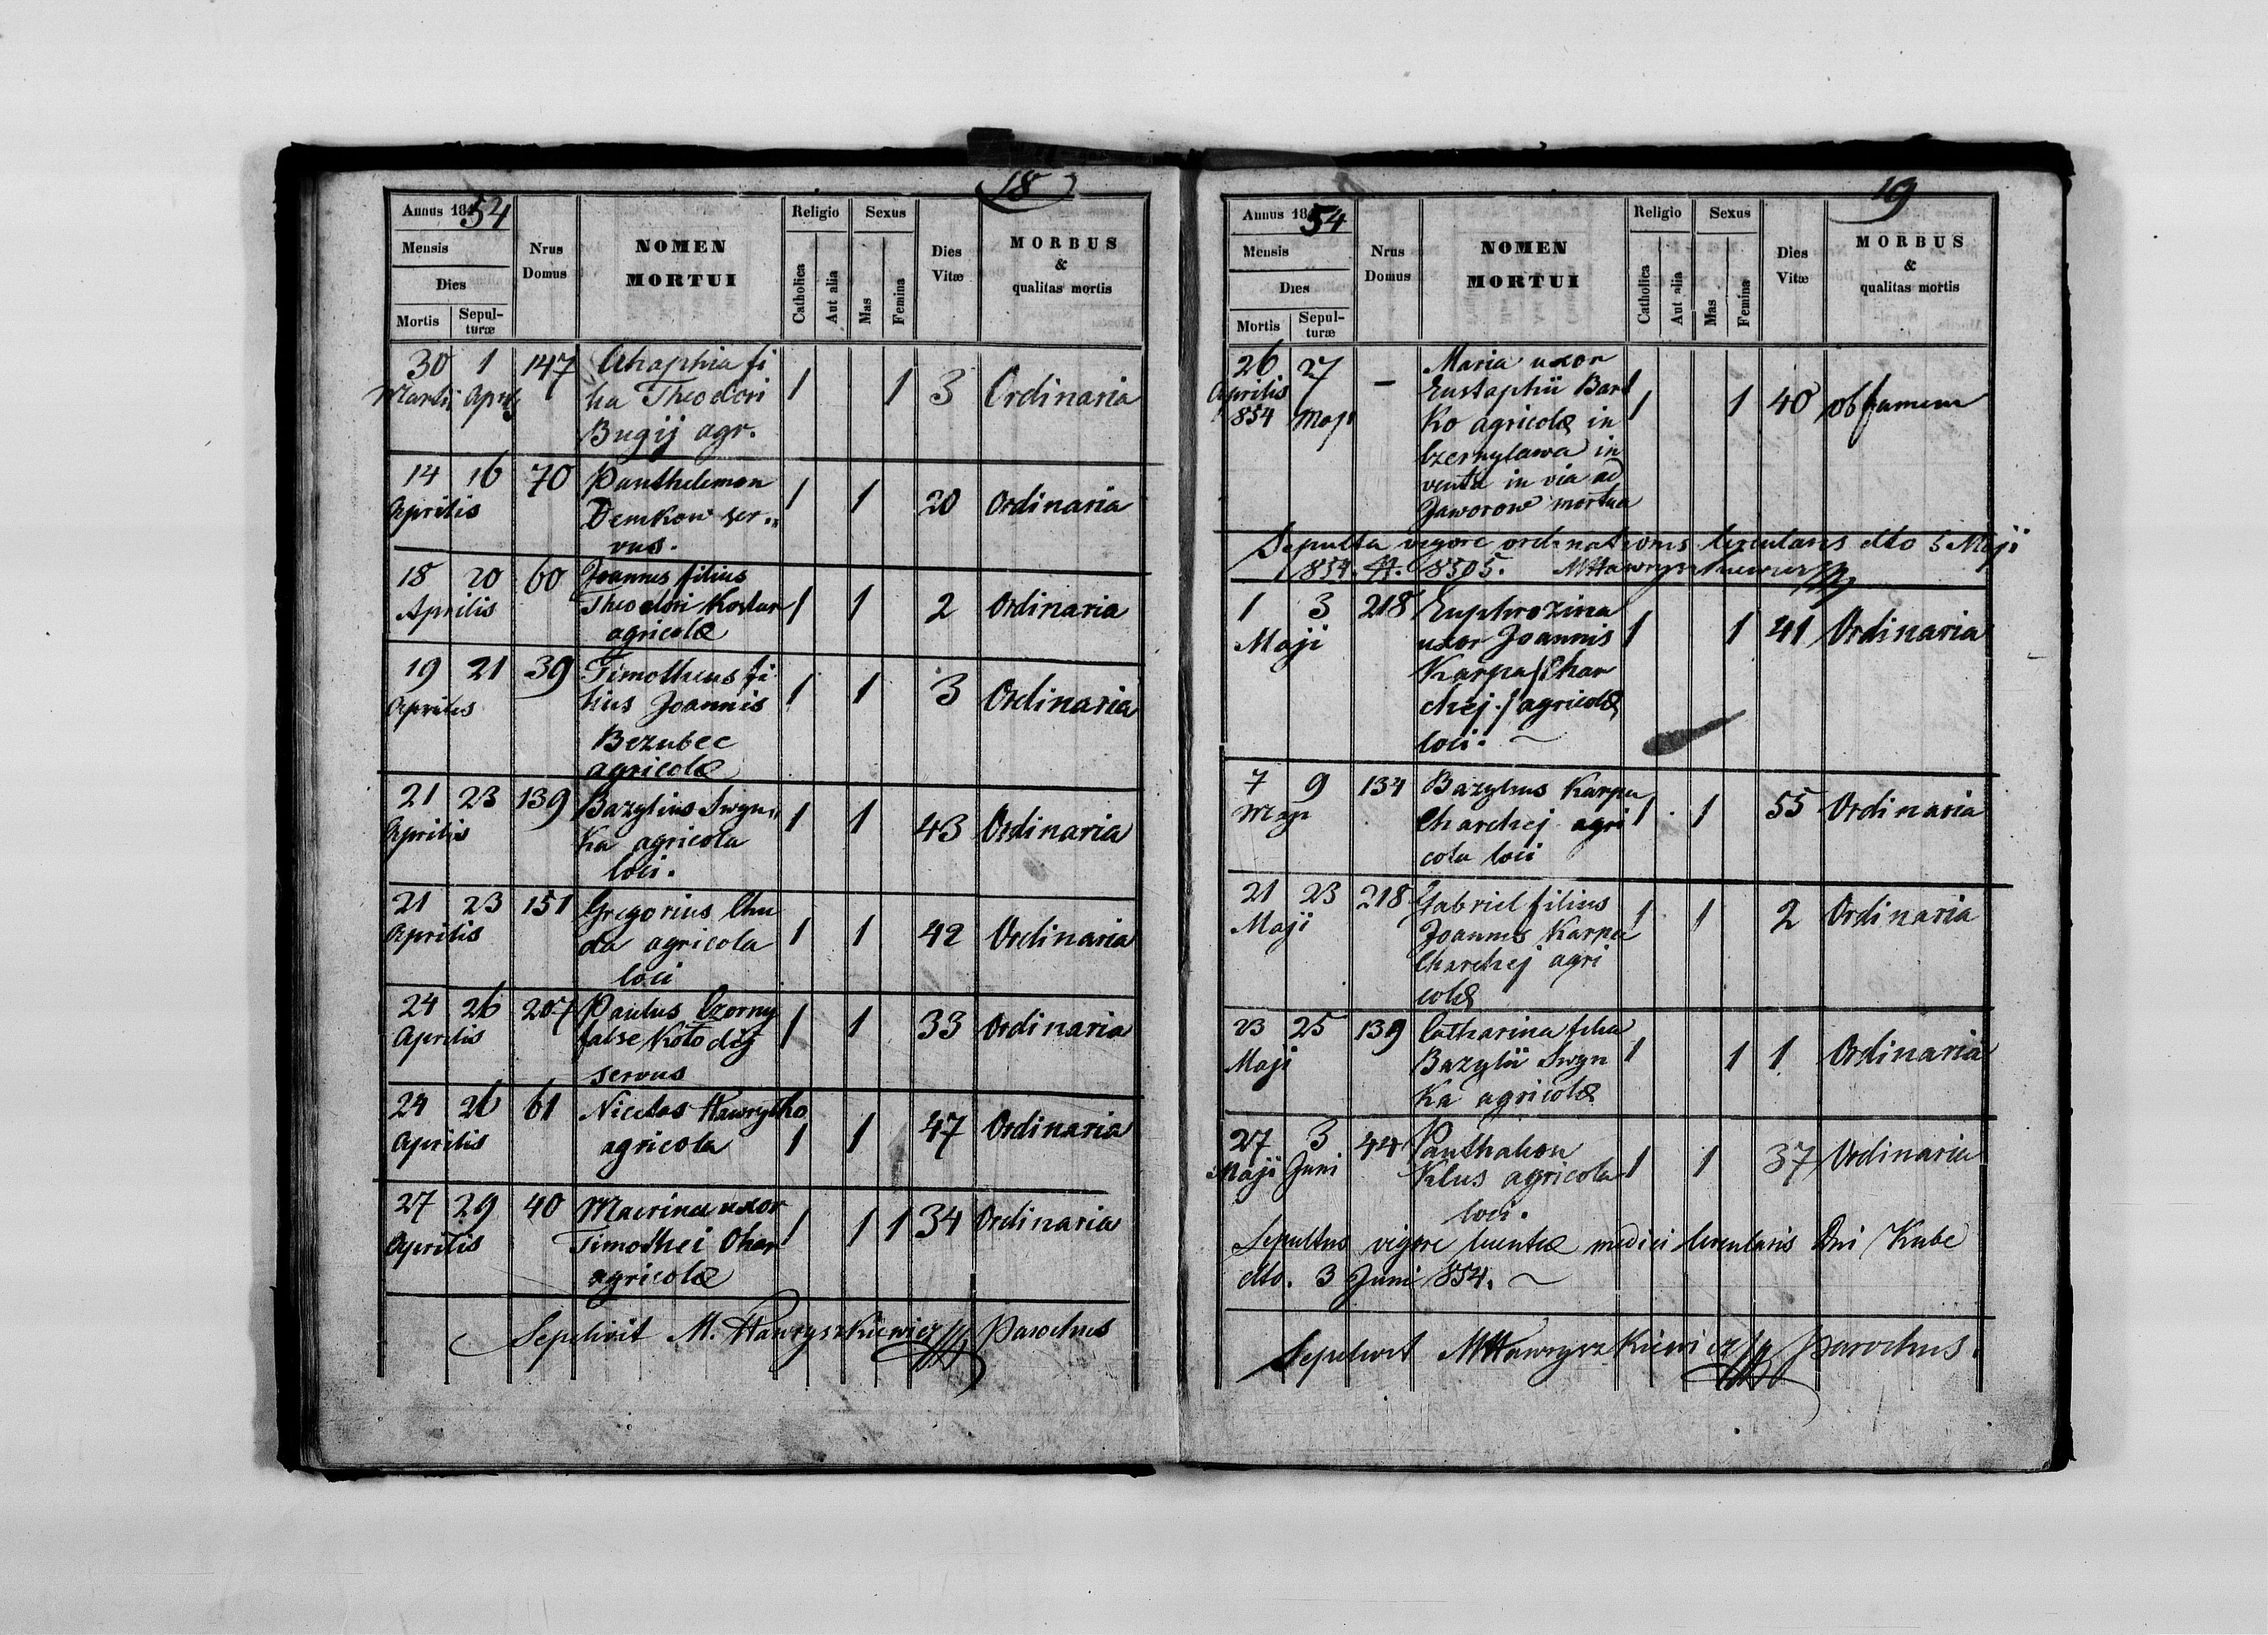 18
Annus 1854
Mensis
Dies
Mortis
Sepul-
turæ
Nrus
Domus
NOMEN
MORTUI
Religio
Catholica
Aut alia
Sexus
Mas
Femina
Dies
Vitæ
MORBUS
&
qualitas mortis
30 1 147 Ahaphia fi
Martii Aprilis lia Theodori 1 1 3 Ordinaria
Bugij agr.
14 16 70 Panthelemon
Aprilis Demkow ser„ 1 1 20 Ordinaria
vus.
18 20 60 Joannes filius
Aprilis Theodori Kostur 1 1 2 Ordinaria
agricolæ
19 21 39 Timotheus fi
Aprilis lius Joannis 1 1 3 Ordinaria
Bezubec
agricolæ
21 23 139 Bazylius Swyn„
Aprilis ka agricola 1 1 43 Ordinaria
loci.
21 23 151 Gregorius Chu
Aprilis da agricola 1 1 42 Ordinaria
loci
24 26 207 Paulus Czorny
Aprilis false Kołodij 1 1 33 Ordinaria
servus
24 26 61 Nicetas Hawrylko
Aprilis agricola 1 1 47 Ordinaria
27 29 40 Macrina uxor
Aprilis Timothei Ohar 1 1 1 34 Ordinaria
agricolæ
Sepelivit M. Hawryszkiewicz Parochus
19
Annus 1854
Mensis
Dies
Mortis
Sepul-
turæ
Nrus
Domus
NOMEN
MORTUI
Religio
Catholica
Aut alia
Sexus
Mas
Femina
Dies
Vitæ
MORBUS
&
qualitas mortis
26 27 – Maria uxor
Aprilis Eustaphii Bart
854 Maji ko agricolæ in 1 1 40 ob famem
Czernylawa in
venta in via ad
Jaworow mortua
Sepulta vigore ordinationis Circularis dto 5 Maji
854. N. 8505. MHawryszkiewicz
1 3 218 Euphrozina
Maji uxor Joannis 1 1 41 Ordinaria
Karpa /Char
chej./ agricolæ
loci.
7 9 134 Bazylius Karpa
Maji Charchej agri 1 1 55 Ordinaria
cola loci
21 23 218 Gabriel filius
Maji Joannis Karpa 1 1 2 Ordinaria
Charchej agri
colæ
23 25 139 Catharina filia
Maji Bazylii Swyn 1 1 1 Ordinaria
ka agricolæ
27 3 44 Panthaleon
Maji Juni Klus agricola 1 1 37 Ordinaria
loci.
Sepultus vigore medici Circularis Dni Kube
dto. 3 Juni 854.
Sepelivit MHawryszkiewicz Parochus.